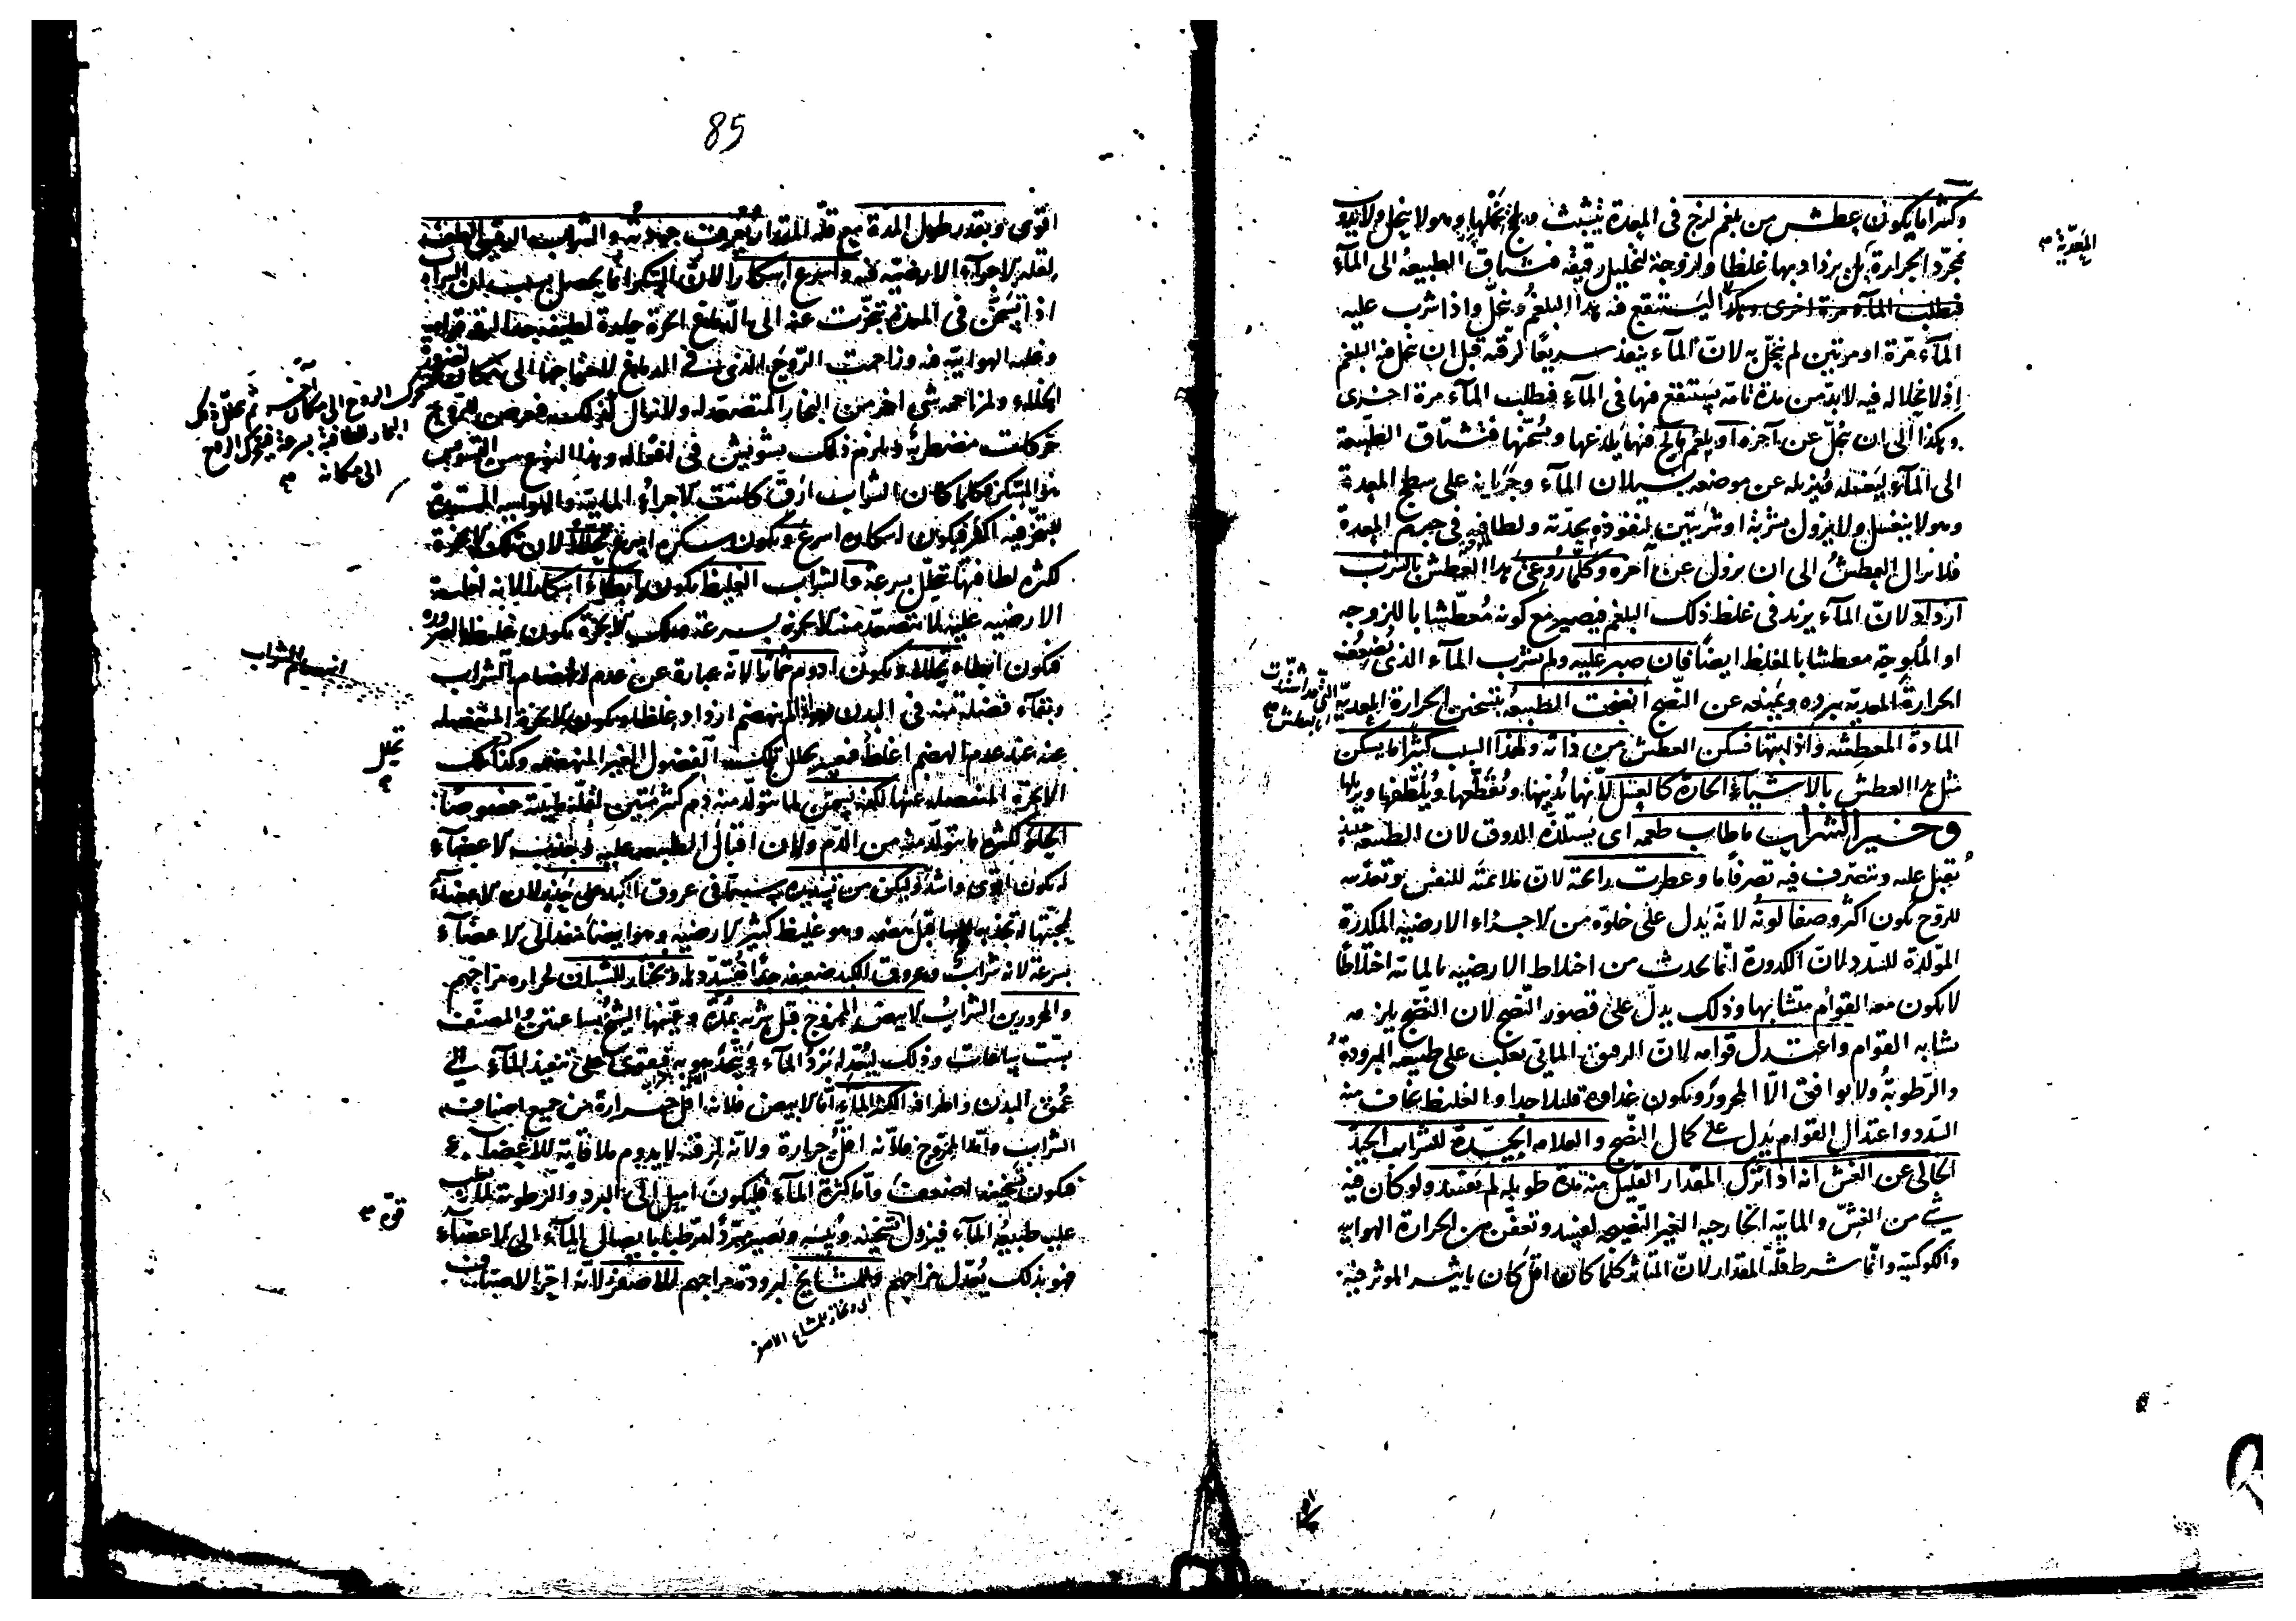 وكثيرا ما يكون عطش من بلغم لزج في المعدة يتشبث بخملها وهو لا ينحل ولا يذوب
بمجرد الحرارة بل يزداد بها غلظا ولزوجة لتحليل رقيقه فتشتاق الطبيعة الى الماء
فتطلب الماء مرة اخرى وهكذا ليستنقع فيه هذا البلغم وينحل واذا شرب عليه
الماء مرة او مرتين لم ينحل به لان الماء ينفذ سريعا لرقته قبل ان ينحل فيه البلغم
اذ لانحلاله فيه لابد من مدة تامة يستنقع فيها في الماء فيطلب الماء مرة اخرى
وهكذا الى ان ينحل عن آخره او بلغم مالح فيها يلذعها ويسخنها فتشتاق الطبيعة
الى الماء ليغسله فيزيله عن موضعه بسيلان الماء وجريانه على سطح المعدة
وهو لا ينغسل ولا يزول بشربة او شربتين لنفوذه بحدته ولطافته في جرم المعدة
فلا يزال العطش الى ان يزول عن آخره وكلما روعى هذا العطش بالشرب
ازداد لان الماء يزيد في غلظ ذلك البلغم فيصير مع كونه معطشا باللزوجة
او الملوحة معطشا بالغلظ ايضا فان صبر عليه ولم يشرب الماء الذي يضعف
الحرارة المعدية ببرده ويمنعه عن النضج انضجت الطبيعة بتسخين الحرارة المعدية
المادة المعطشة واذابتها فسكن العطش من ذاته ولهذا السبب كثيرا ما يسكن
مثل هذا العطش بالاشياء الحارة كالعسل لانها تذيبها وتقطعها وتلطفها ويزيلها
وخير الشراب ما طاب طعمه اى يستلذه الذوق لان الطبيعة حينئذ
تقبل عليه وتتصرف فيه تصرفا تاما وعطرت رائحته لان ملائمته للنفس وتغذيته
للروح يكون اكثر وصفا لونه لانه يدل على خلوه من الاجزاء الارضية المكدرة
المولدة للسدد لان الكدورة انما يحدث من اختلاط الارضية بالمائية اختلاطا
لا يكون معه القوام متشابها وذلك يدل على قصور النضج لان النضج يلزمه
تشابه القوام واعتدل قوامه لان الرقيق المائي يغلب على طبيعته البرودة
والرطوبة ولا يوافق الا المحرور ويكون غذاؤه قليلا جدا والغليظ يخاف منه
السدد واعتدال القوام يدل على كمال النضج والعلامة الجيدة للشراب الجيد
الخالى عن الغش انه اذا ترك المقدار القليل منه مدة طويلة لم يفسد ولو كان فيه
شئ من الغش والمائية الخارجية الغير النضيجة لفسد وتعفن من الحرارة الهوائية
والكوكبية وانما شرط قلة المقدار لان المتأثر كلما كان اقل كان تأثير الموثر فيه
المعدية
التي اشتدت
العطش
85
اقوى وبقدر طول المدة مع قلة المقدار يعرف جودته والشراب الرقيق اللطيف
لقلة الاجزاء الارضية فيه واسرع اسكارا لان السكر انما يحصل بسبب ان الشراب
اذا تسخن في المعدة تبخرت عنه الى الدماغ ابخرة حادة لطيفة جدا لرقة قوامه
وغلبة الهوائية فيه وزاحمت الروح الذى في الدماغ لاحتياجها الى مكان لضرورة
الخلاء ولمزاحمة شئ آخر من البخار المتصعد له ولا يزال كذلك فيعرض للروح
حركات مضطربة ويلزم ذلك تشويش في افعاله وهذا النوع من التشويش
هو السكر وكلما كان الشراب ارق كانت الاجزاء المائية والهوائية المستعدة
للتبخر فيه اكثر فيكون اسكاره اسرع ويكون سكره اسرع تحللا لان تلك الابخرة
لكثرة لطافتها تتحلل بسرعة والشراب الغليظ يكون ابطاء اسكارا لانه لغلبة
الارضية عليه لا تتصعد منه الابخرة بسرعة وتلك الابخرة يكون غليظة بالضرورة
فيكون ابطاء تحللا ويكون ادوم خمارا لانه عبارة عن عدم انهضام الشراب
وبقاء فضلة منه في البدن واذا لم ينهضم ازداد غلظا ويكون الابخرة المنفصلة
عنه عند عدم الهضم اغلظ فيعسر تحلل تلك الفضول الغير المنهضمة وكذلك
الابخرة المنفصلة عنها لكنه يسمن لما يتولد منه دم كثير متين لقلة مائيته خصوصا
الحلو لكثرة ما يتولد منه من الدم ولان اقبال الطبيعة عليه وجذب الاعضاء
له يكون اقوى واشد وليكن من تسديده سيما في عروق الكبد على حذر لان الاعضاء
لمحبتها له تجذبه اليها قبل هضمه وهو غليظ كثير الارضية وهو ايضا ينفذ الى الاعضاء
بسرعة لانه شراب وعروق الكبد ضيقة جدا فتسدد به ويختار للشبان لحرارة مزاجهم
والمحرورين الشراب الابيض الممزوج قبل شربه بمدة وعينها الشيخ بساعتين والمصنف
بست ساعات وذلك ليعدله برد الماء ويتحد هو به فيقوى على تنفيذ الماء الى
عمق البدن واطرافه الكثير الماء اما الابيض فلانه اقل حرارة من جميع اصناف
الشراب واما الممزوج فلانه اقل حرارة ولانه لرقته لا يدوم ملاقاته للاعضاء
فيكون تسخينه اضعف واما كثرة الماء فليكون اميل الى البرد والرطوبة لغلبة
عليه طبيعة الماء فيزول تسخينه ويبسه ويصير مبردا مرطبا بايصال الماء الى الاعضاء
فهو بذلك يعدل مزاجهم وللمشايخ لبرودة مزاجهم الاصفر لانه احر الاصناف
تحرك الروح الى مكان آخر ثم تحلل ذلك
البخار للطافته بسرعة فيتحرك الروح
الى مكانه
انهضام الشراب
تحلل
قوة
اى ويختار للمشايخ الاصفر